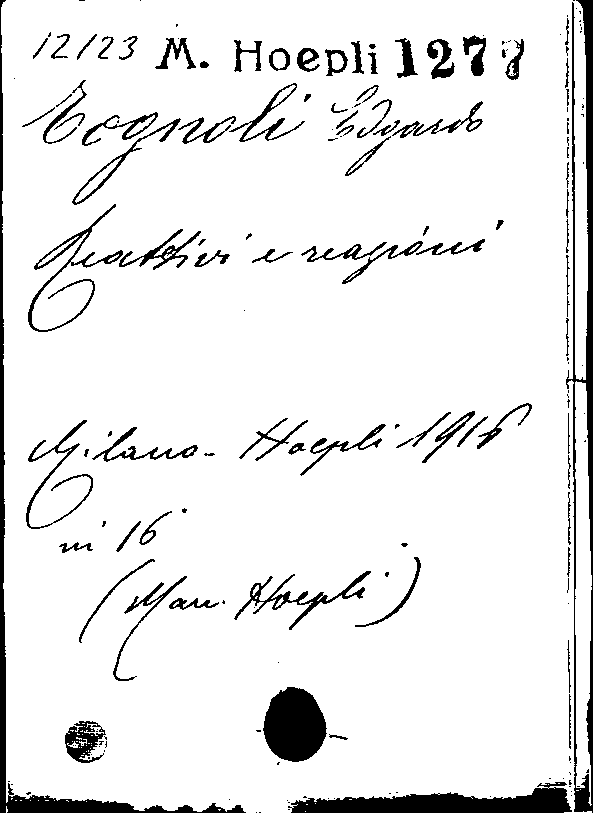 12/23 M. Hoepli 1277
Tognoli Edgardo
Reattivi e reazioni
Milano - Hoepli 1916
in 16°
(Man. Hoepli)